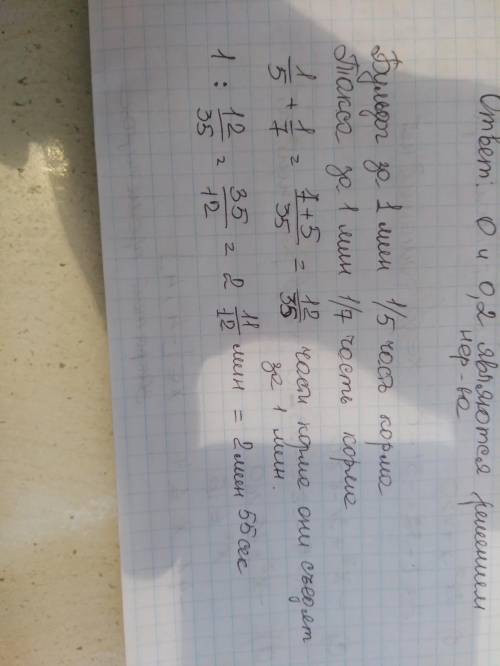 Ответ: 0 и 0,2 являются решением
нер-ва
Бульдог за 1 мин 1/5 часть корма
Такса за 1 мин 1/7 часть корма
1/5 + 1/7 = 7+5/35 = 12/35 части корма они съедят
за 1 мин.
1 : 12/35 = 35/12 = 2 11/12 мин = 2 мин 55 сек